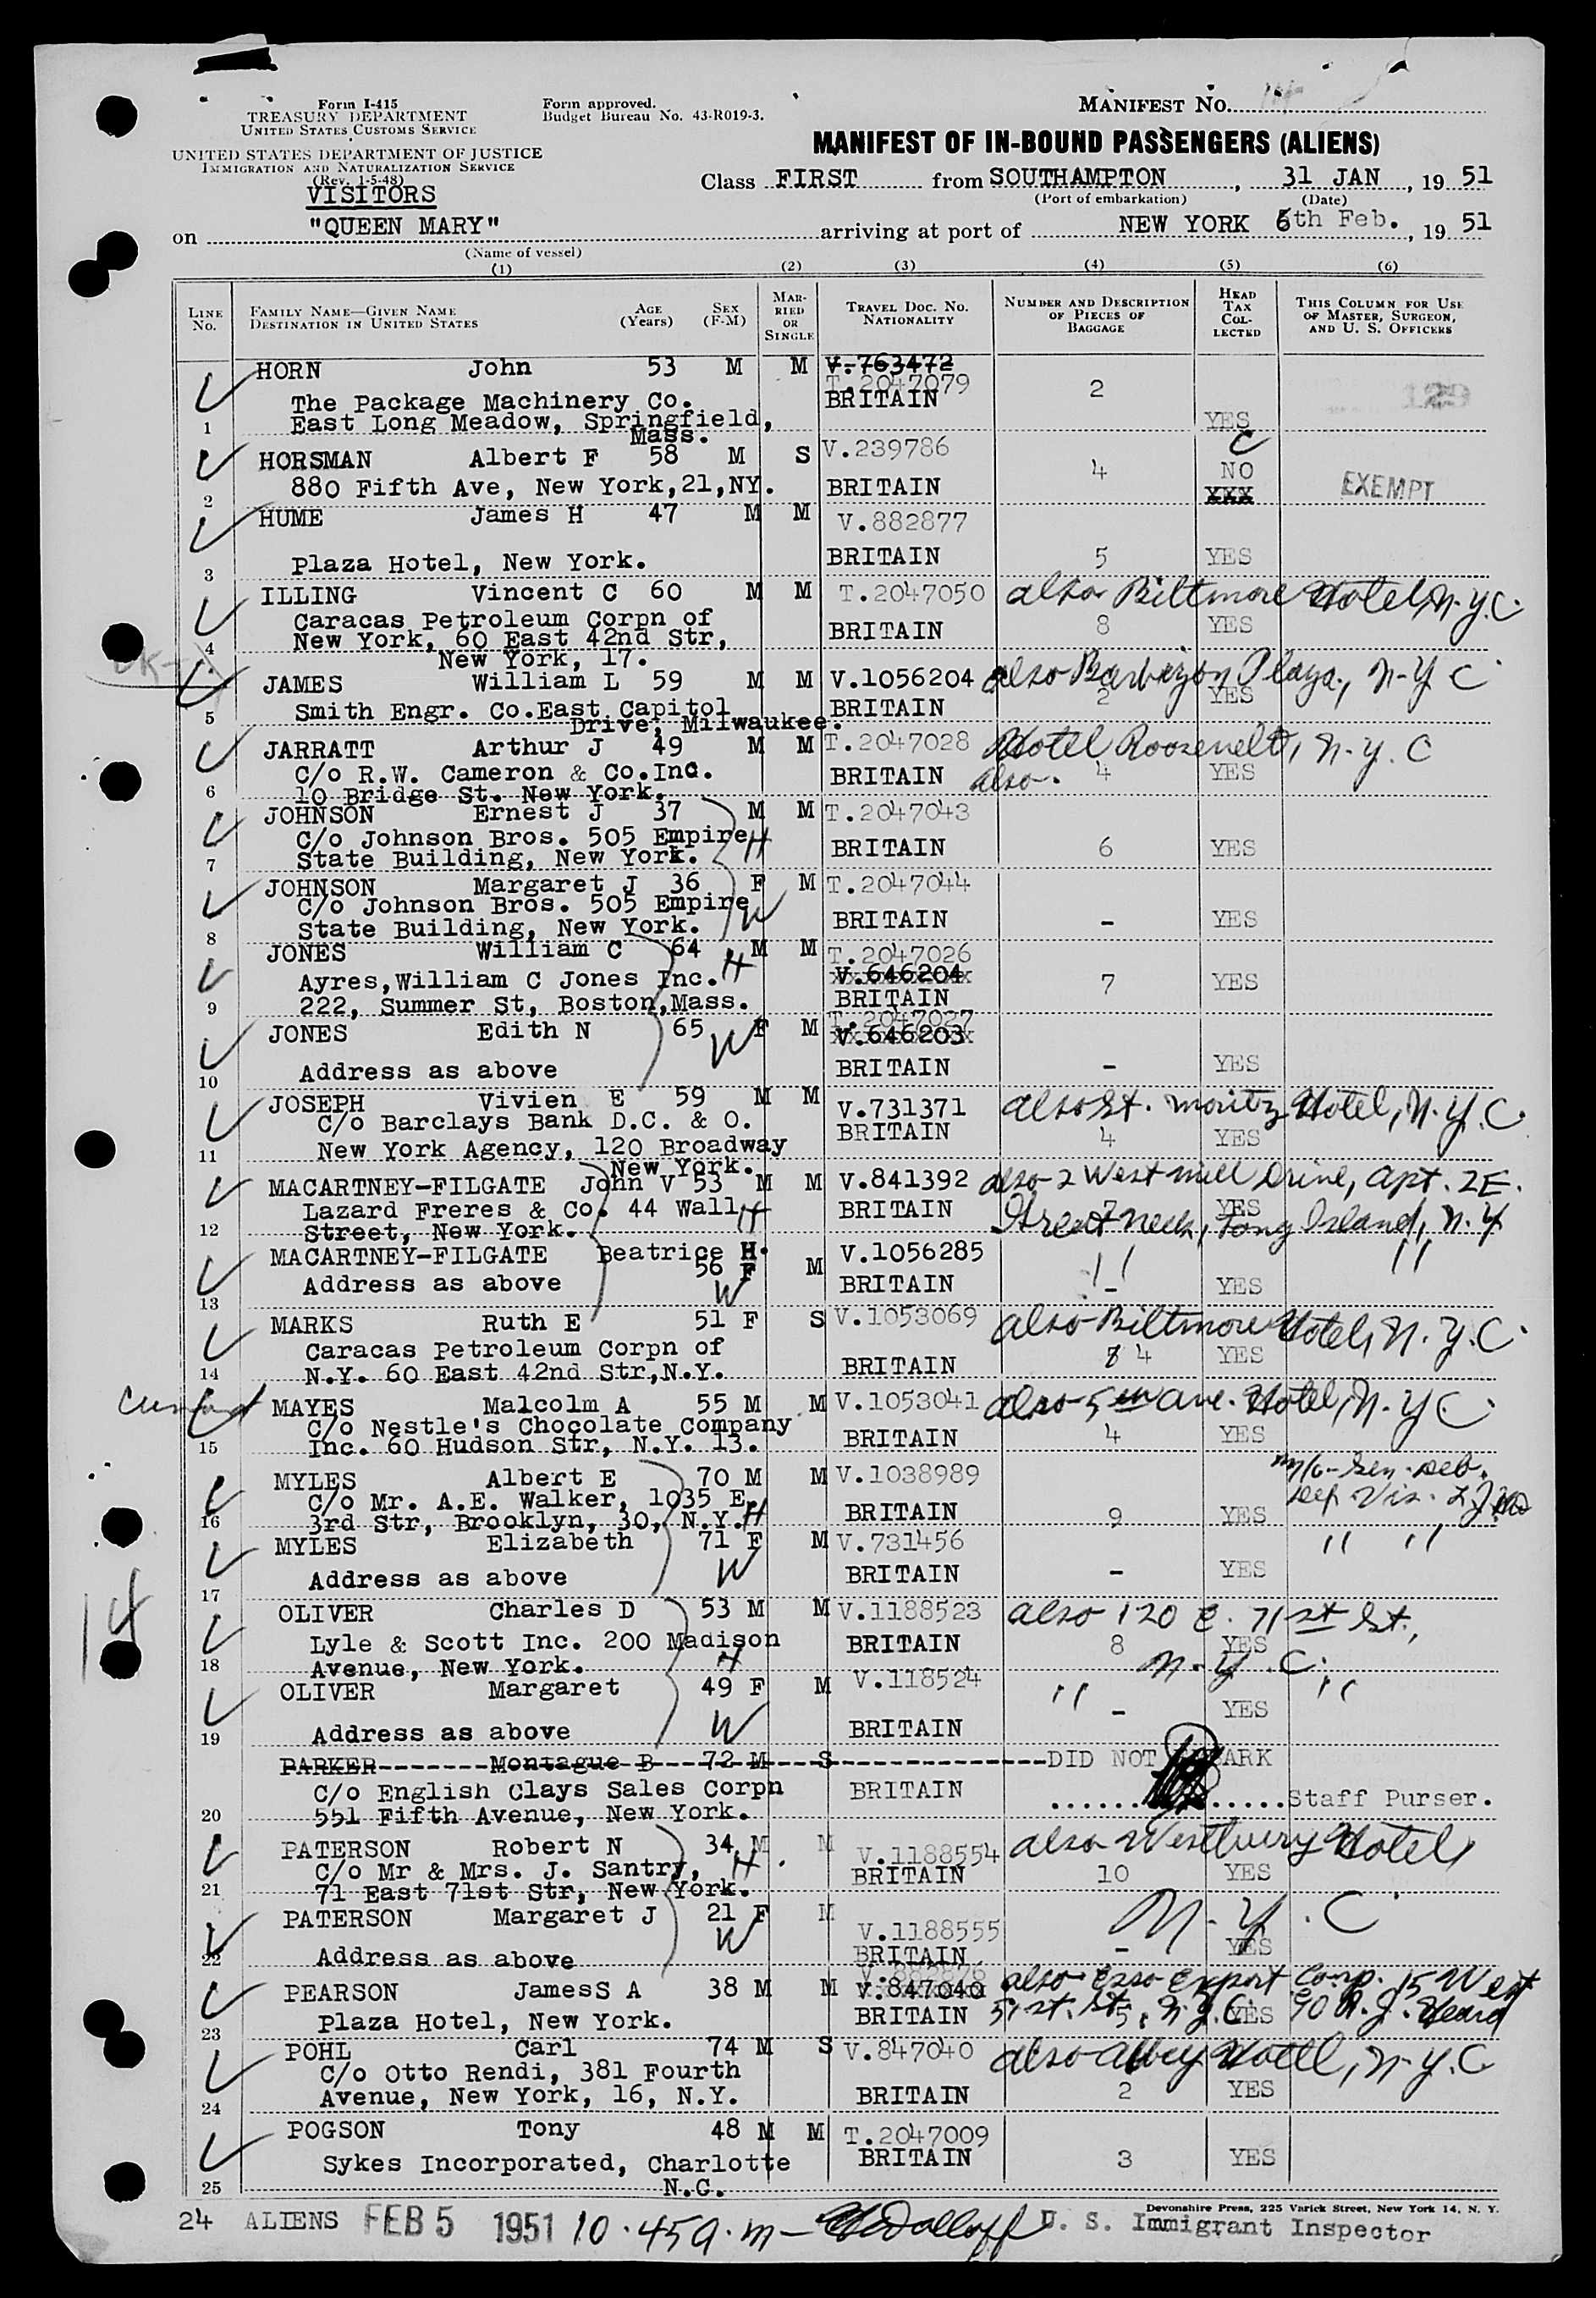 Form I-415
TREASURY DEPARTMENT
UNITED STATES CUSTOMS SERVICE
Form approved.
Budget Bureau No. 43-R019-3.
MANIFEST No.
UNITED STATES DEPARTMENT OF JUSTICE
IMMIGRATION AND NATURALIZATION SERVICE
(Rev. 1-5-48)
MANIFEST OF IN-BOUND PASSENGERS (ALIENS)
VISITORS
Class FIRST from SOUTHAMPTON, 31 JAN, 1951
(Port of embarkation) (Date)
on "QUEEN MARY" arriving at port of NEW YORK 5th Feb., 1951
(Name of vessel)
(1) (2) (3) (4) (5) (6)
LINE No. FAMILY NAME—GIVEN NAME DESTINATION IN UNITED STATES AGE (Years) SEX (F-M) MARRIED OR SINGLE TRAVEL DOC. No. NATIONALITY NUMBER AND DESCRIPTION OF PIECES OF BAGGAGE HEAD TAX COLLECTED THIS COLUMN FOR USE OF MASTER, SURGEON, AND U. S. OFFICERS
HORN John 53 M M V.763472
T.2047079
The Package Machinery Co. BRITAIN 2 129
1 East Long Meadow, Springfield, YES
Mass. C
HORSMAN Albert F 58 M S V.239786
4 NO
2 880 Fifth Ave, New York,21,NY. BRITAIN XXX EXEMPT
HUME James H 47 M M V.882877
3 Plaza Hotel, New York. BRITAIN 5 YES
ILLING Vincent C 60 M M T.2047050 also Biltmore Hotel, N.Y.C.
Caracas Petroleum Corpn of
4 New York, 60 East 42nd Str, BRITAIN 8 YES
New York, 17.
JAMES William L 59 M M V.1056204 also Barbizon Plaza, N.Y C
5 Smith Engr. Co.East Capitol BRITAIN 2 YES
Drive, Milwaukee.
JARRATT Arthur J 49 M M T.2047028 Hotel Roosevelt, N.Y.C
C/o R.W. Cameron & Co.Inc. BRITAIN also. 4 YES
6 10 Bridge St. New York.
JOHNSON Ernest J 37 M M T.2047043
C/o Johnson Bros. 505 Empire H
7 State Building, New York. BRITAIN 6 YES
JOHNSON Margaret J 36 F M T.2047044
C/o Johnson Bros. 505 Empire W
8 State Building, New York. BRITAIN - YES
JONES William C 64 M M T.2047026
Ayres,William C Jones Inc. H V.646204 7 YES
9 222, Summer St, Boston,Mass. BRITAIN
T.2047027
JONES Edith N 65 W F M V.646203
10 Address as above BRITAIN - YES
JOSEPH Vivien E 59 M M V.731371 also St. Moritz Hotel, N.Y.C.
C/o Barclays Bank D.C. & O. BRITAIN 4 YES
11 New York Agency, 120 Broadway
New York.
MACARTNEY-FILGATE John V 53 M M V.841392 also 2 West mill Drive, Apt. 2E.
Lazard Freres & Co. 44 Wall H BRITAIN 7 YES
12 Street, New York. Great Neck, Long Island, N.Y
MACARTNEY-FILGATE Beatrice H. V.1056285 " "
56 F M
13 Address as above W BRITAIN - YES
MARKS Ruth E 51 F S V.1053069 also Biltmore Hotel, N.Y.C.
Caracas Petroleum Corpn of
14 N.Y. 60 East 42nd Str,N.Y. BRITAIN 4 YES
MAYES Malcolm A 55 M M V.1053041 also 5th Ave. Hotel, N.Y C.
C/o Nestle's Chocolate Company
15 Inc. 60 Hudson Str, N.Y. 13. BRITAIN 4 YES
MYLES Albert E 70 M M V.1038989
C/o Mr. A.E. Walker, 1035 E.
16 3rd Str, Brooklyn, 30, N.Y. H BRITAIN 9 YES
MYLES Elizabeth 71 F M V.731456 " "
17 Address as above W BRITAIN - YES
14
OLIVER Charles D 53 M M V.1188523 also 120 E. 71st St.,
Lyle & Scott Inc. 200 Madison BRITAIN 8 YES
18 Avenue, New York. H N.Y.C.
OLIVER Margaret 49 F M V.118524 " "
- YES
19 Address as above W BRITAIN
PARKER Montague B 72 M S DID NOT EMBARK
C/o English Clays Sales Corpn BRITAIN Staff Purser.
20 551 Fifth Avenue, New York.
PATERSON Robert N 34 M M V.1188554 also Westbury Hotel,
C/o Mr & Mrs. J. Santry, H BRITAIN 10 YES
21 71 East 71st Str, New York.
PATERSON Margaret J 21 F M V.1188555 N.Y.C
22 Address as above W BRITAIN - YES
PEARSON JamesS A 38 M M V.847040 also Esso Export Corp. 15 West
23 Plaza Hotel, New York. BRITAIN 51st. St., N.Y.C. 5 YES
POHL Carl 74 M S V.847040 also Abbey Hotel, N.Y.C
C/o Otto Rendi, 381 Fourth
24 Avenue, New York, 16, N.Y. BRITAIN 2 YES
POGSON Tony 48 M M T.2047009
Sykes Incorporated, Charlotte BRITAIN 3 YES
25 N.C.
Devonshire Press, 225 Varick Street, New York 14, N. Y.
24 ALIENS FEB 5 1951 10.45 a.m- U. S. Immigrant Inspector